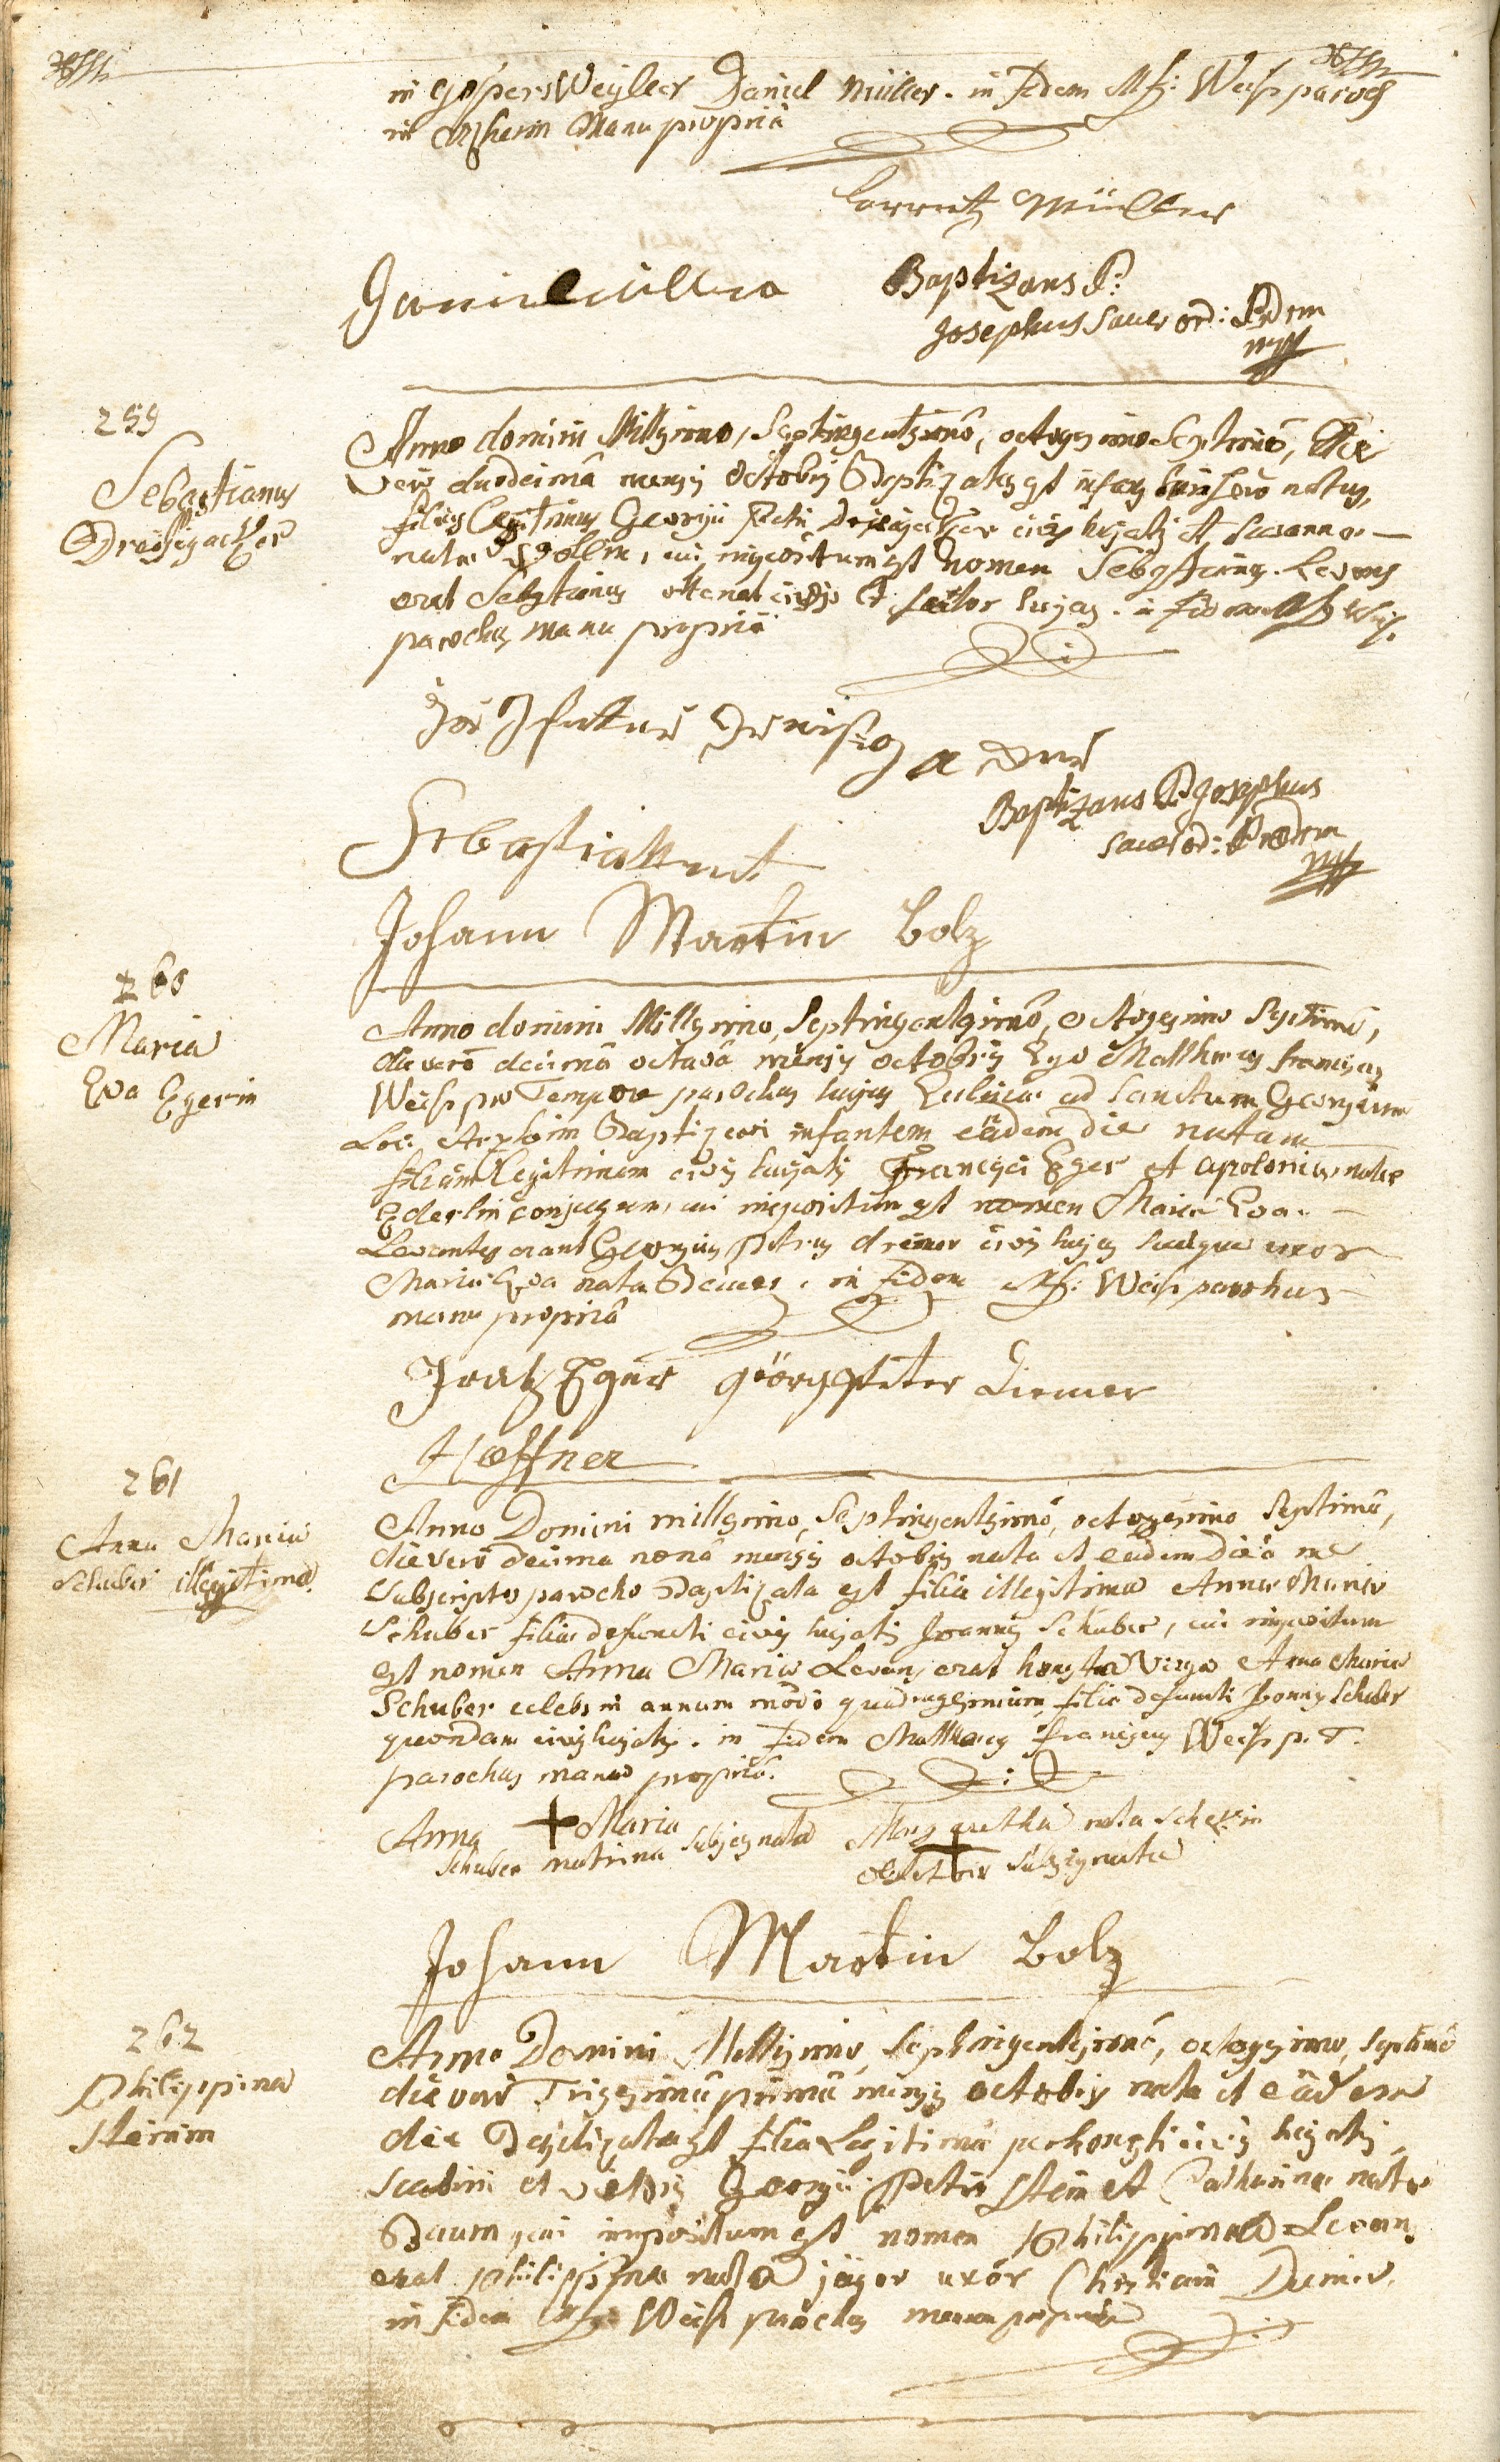 in gospersWeyller Daniel Müller. in Fidem Mf: Weiss paroch
in Arzheim Manu propriâ
Lorentz Müller
Baptizans P:
Josephus Sauer ord: Praem
mpp
259
Sebastianus
Dreisigacker
Anno domini Millesimo, Septingentesimô, octogesimo Septimô, Die
vero duodecimâ mensis octobris Baptizatus est infans hui natus,
filius Legitimus Georgii Petri Dreisigacker civis hujatis et Susannae
natae , cui impositum est Nomen Sebastianus. Levans
erat Sebastianus ottenat civis et sartor hujas. in fidem Mf Weiss
parochus manu propriâ
Baptizans P. Josephus
Sauer ord: Praem
mpp
Johann Martin Bolz
260
Maria
Eva Egerin
Anno domini Millesimo, Septingentesimô, octogesimo Septimô,
die verô decimâ octavâ mensis octobris Ego Matthaeus franciscus
Weiss pro Tempore parochus hujus Ecclesiae ad Sanctum Georgium
Loci Arzheim Baptizavi infantem eâdem die natam
filiam Legitimam civis hujatis Francisci Eger et Apoloniae natae
Ederlin conjugum, cui impositum est nomen Maria Eva.
Levantes erant Georgius Petrus diemer civis hujas ejusque uxor
Maria Eva nata . in Fidem Mf: Weiss parochus
manu propriâ
Frantz Eger görg Peter Diemer
Hoeffner
261
Anna Maria
Schuber illegitima
Anno Domini millesimo, Septingentesimô, octogesimo Septimô,
die verô decima nonâ mensis octobris nata et eâdem Die â me
Subscripto parocho Baptizata est filia illegitima Annae Mariae
Schuber filiae defuncti civis hujatis Joannis Schuber, cui impositum
est nomen Anna Maria Levans erat honesta Virgo Anna Maria
Schuber celebs in annum modò quadragesimum, filia defuncti Joannis Schuber
quondam civis hujatis. in Fidem Matthaeus franciscus Weiss p. T.
parochus manu propriâ.
Anna + Maria Margaretha nata
Schuber matrina subsignata + obstetrix subsignata
Johann Martin Bolz
262
Philippina
Steinin
Anno Domini Millesimo, Septingentesimô, octogesimo, Septimô
die verô Trigesimâ primâ mensis octobris nata et eâdem
die Baptizata est filia Legitima perhonesti civis hujatis
Scabini et Georgii Petri Stein et Catharinae natae
Baum, cui impositum est nomen Philippina Levans
erat philippina nata jäger uxor Christiani
in fidem Mf: Weiss parochus manu propriâ